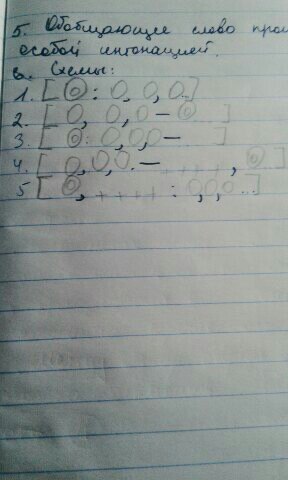 5. Обобщающее слово про
особой интонацией.
6. Схемы:
1. [ ⊙ : O, O, O.. ]
2. [ O, O, O – ⊙... ]
3. [ ⊙: O, O, O – ... ]
4. [ O, O, O. – ++++ , ⊙.. ]
5 [ ⊙, ++++ : O, O, O... ]